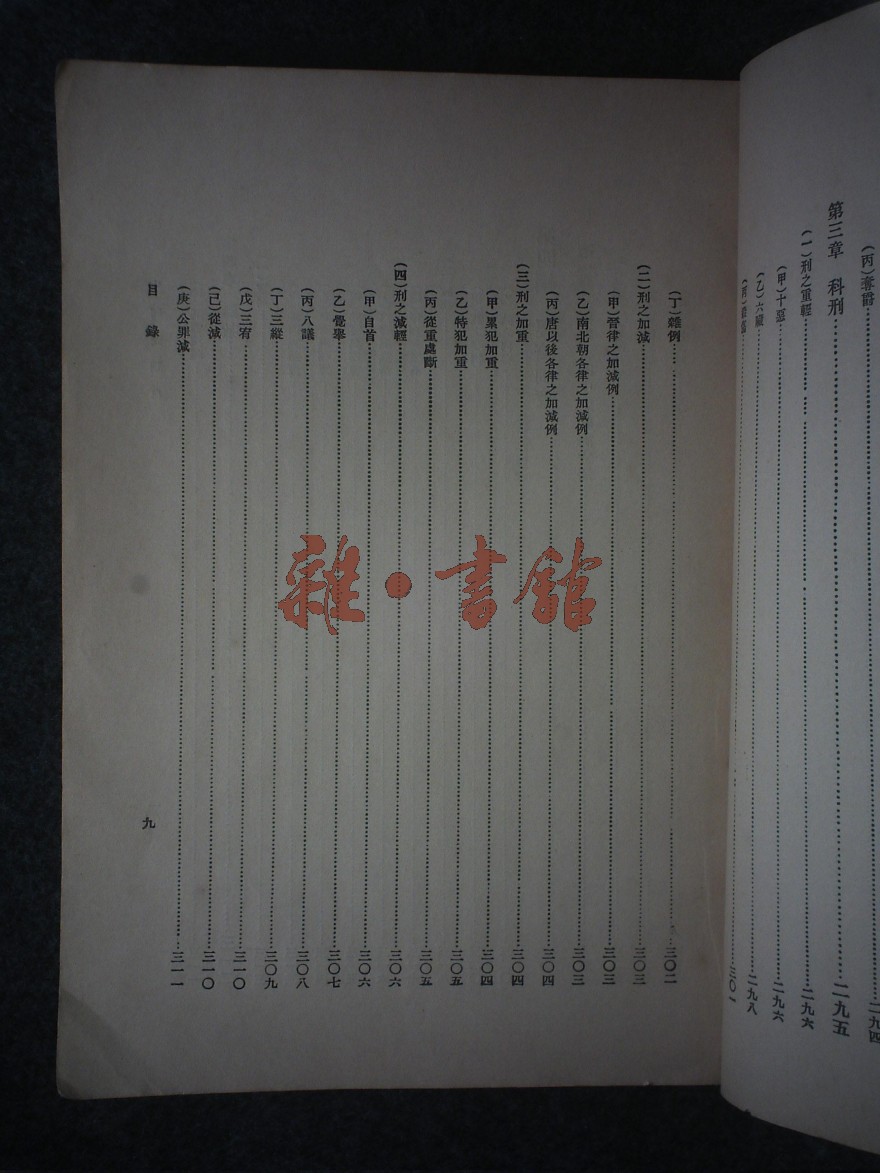 (丙)奪爵……二九四
第三章　科刑……二九五
(一)刑之重輕……二九六
(甲)十惡……二九六
(乙)六贓……二九八
三〇一
(丁)雜例……三〇二
(二)刑之加減……三〇三
(甲)晉律之加減例……三〇三
(乙)南北朝各律之加減例……三〇三
(丙)唐以後各律之加減例……三〇四
(三)刑之加重……三〇四
(甲)累犯加重……三〇四
(乙)特犯加重……三〇五
(丙)從重處斷……三〇五
(四)刑之減輕……三〇六
(甲)自首……三〇六
(乙)覺舉……三〇七
(丙)八議……三〇八
(丁)三縱……三〇九
(戊)三宥……三一〇
(己)從減……三一〇
(庚)公罪減……三一一
目錄
九
雜·書館